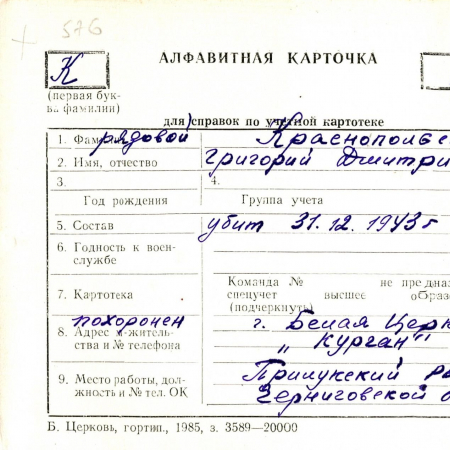 576
АЛФАВИТНАЯ КАРТОЧКА
К
(первая бук-
ва фамилии)
для справок по учетной картотеке
1. Фамилия рядовой Краснопольс
2. Имя, отчество Григорий Дмитри
3.
Год рождения
4.
Группа учета
5. Состав убит 31.12.1943г
6. Годность к воен-
службе
7. Картотека
Команда № не предназ
спецучет высшее образ
(подчеркнуть)
похоронен г. Белая Церк
8. Адрес м-житель-
ства и № телефона
„Курган"
9. Место работы, дол-
жность и № тел. ОК
Прилукский ра
Черниговской о
Б. Церковь, гортип., 1985, з. 3589—20000